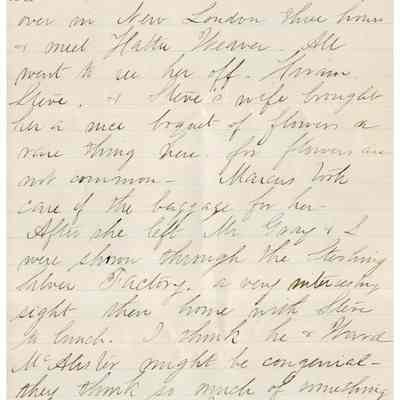 over in New London three hours
& meet Hattie Weaver. All
went to see her off. Hiram
Steve. & Steve's wife bought
her a nice boquet of flowers a
rare thing here. for flowers are
not common - Marcus took
care of the baggage for her-
After she left Mr Gray & I
were shown through the Sterling
Silver Factory. a very interesting
sight then home with Steve
to lunch. I think he & Ward
McAlister might be congenial-
they think so much of something